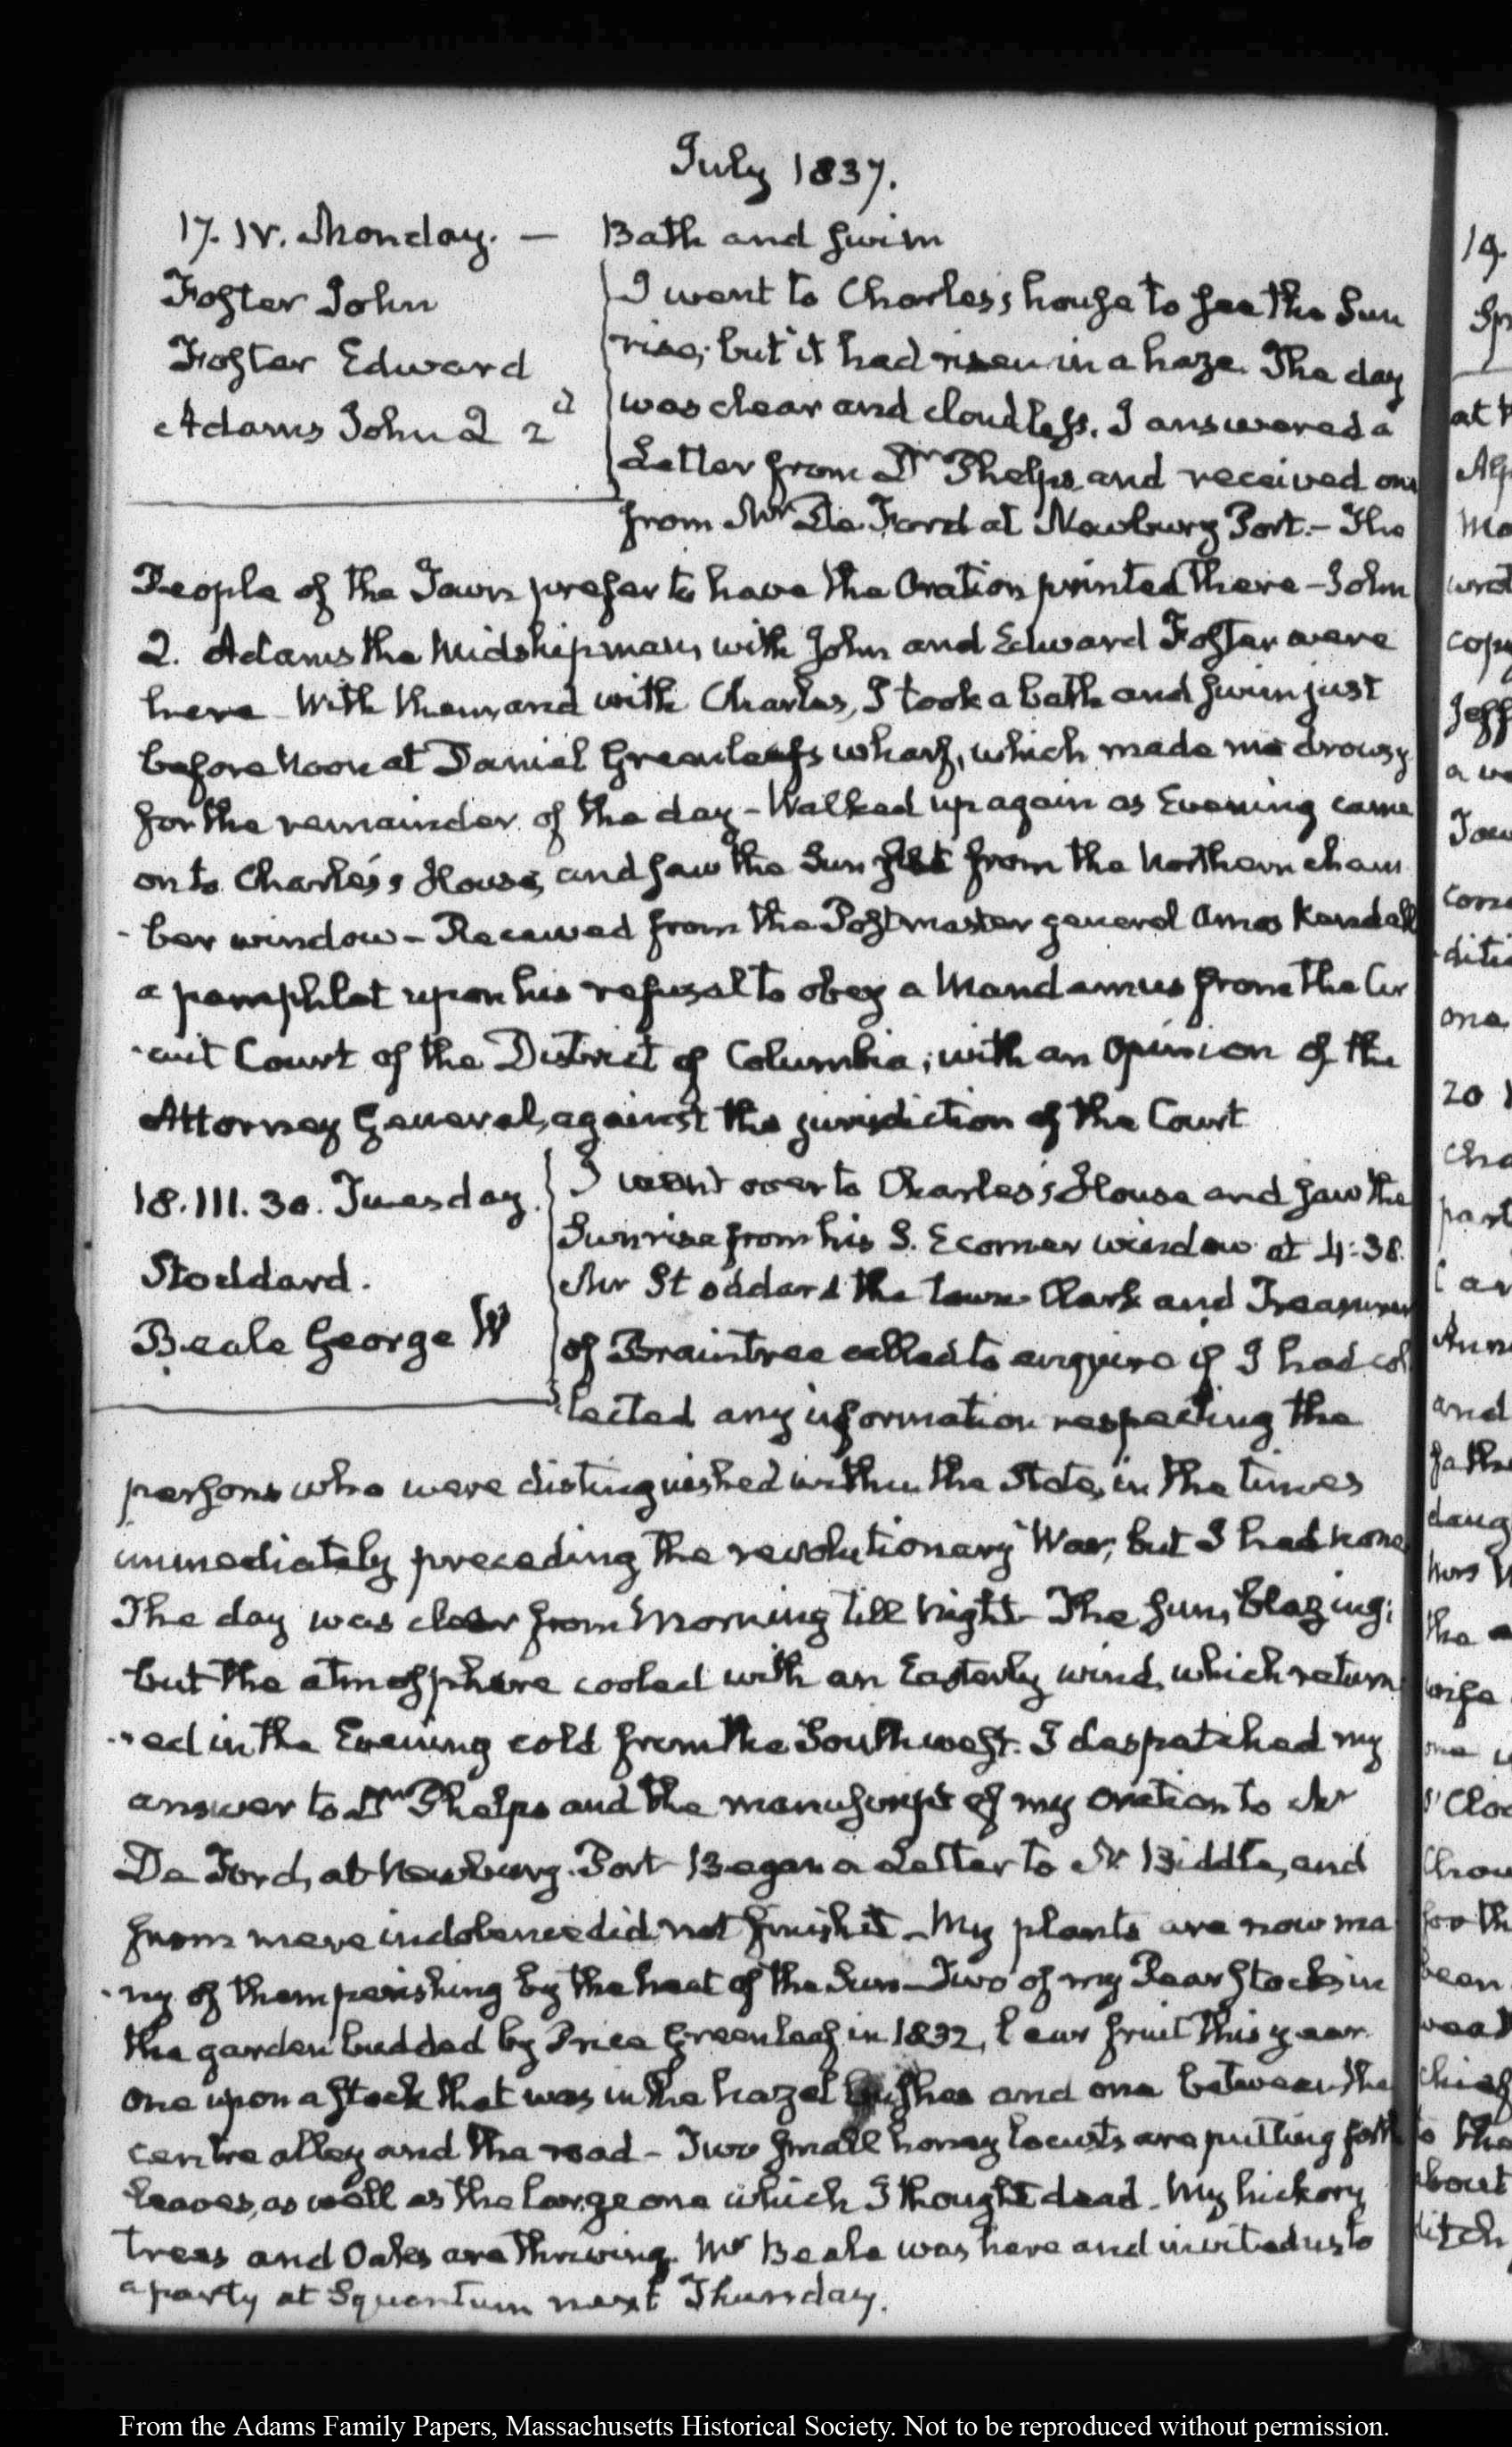 July 1837.
17. IV. Monday. — Bath and swim
Foster John
Foster Edward
Adams John Q 2d
I went to Charles's house to see the Sun
rise; but it had risen in a haze. The day
was clear and cloudless. I answered a
Letter from Dr Phelps and received one
from Mr De Ford at Newbury Port.— The
People of the Town prefer to have the Oration printed there — John
Q. Adams the Midshipman, with John and Edward Foster were
here — With them, and with Charles, I took a bath and swim just
before Noon at Daniel Greenleafs wharf, which made me drowsy
for the remainder of the day — Walked up again as Evening came
on to Charles's House, and saw the Sun set from the Northern cham
-ber window — Received from the Postmaster general Amos Kendall
a pamphlet upon his refusal to obey a Mandamus from the Cir
-cuit Court of the District of Columbia; with an Opinion of the
Attorney General, against the jurisdiction of the Court
18. III. 30. Tuesday.
Stoddard.
Beale George W
I went over to Charles's House and saw the
Sunrise from his S. E corner window at 4:38.
Mr Stoddard the town Clerk and Treasurer
of Braintree called to enquire if I had col
lected any information respecting the
persons who were distinguished within the State, in the times
immediately preceding the revolutionary War, but I had none
The day was clear from Morning till Night — The Sun, blazing;
but the atmosphere cooled with an Easterly wind, which return
-ed in the Evening cold from the Southwest. I despatched my
answer to Dr Phelps and the manuscript of my oration to Mr
De Ford, at Newbury-Port — Began a Letter to N. Biddle, and
from mere indolence did not finish it — My plants are now ma
-ny of them perishing by the heat of the Sun — Two of my Pear stocks in
the garden budded by Price Greenleaf in 1832, bear fruit this year
one upon a stock that was in the hazel bushes and one between the
centre alley and the road — Two small honey locusts are putting forth
leaves, as well as the large one which I thought dead. My hickory
trees and Oaks are thriving. Mr Beale was here and invited us to
a party at Squantum next Thursday.
19.
at
20
From the Adams Family Papers, Massachusetts Historical Society. Not to be reproduced without permission.